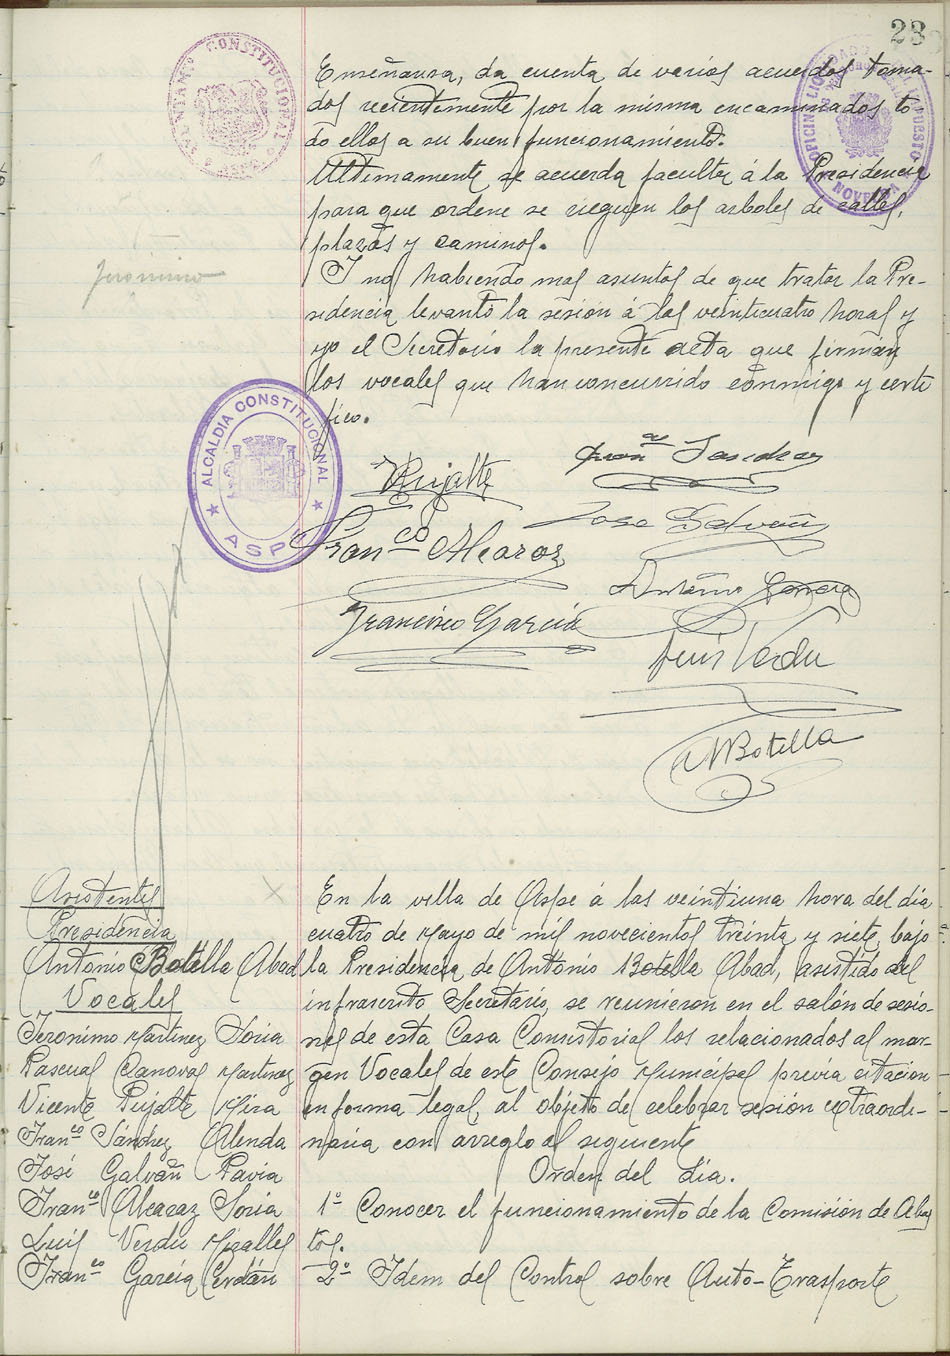 23
Enseñanza, da cuenta de varios acuerdos toma-
dos recientemente por la misma encaminados to
do ellos a su buen funcionamiento.
Ultimamente se acuerda facultar á la Presidencia
para que ordene se rieguen los arboles de calles,
plazas y caminos.
Y no habiendo mas asuntos de que tratar la Pre-
sidencia levantó la sesión á las veinticuatro horas y
yo el Secretario la presente acta que firman
los vocales que han concurrido conmigo y certi
fico.
Jeronimo
AYUNTAMTO CONSTITUCIONAL
OFICINA LIQUIDADORA
NOVELDA
ALCALDIA CONSTITUCIONAL
ASPE
VPujalte
Franco Sanchez
Jose Galvañ
Franco Alcaraz
Antonio Garcia
Francisco García
Luis Verdu
ABotella
Asistentes
Presidencia
Antonio Botella Abad
Vocales
Jeronimo Martinez Soria
Pascual Canovas Martinez
Vicente Pujalte Mira
Franco Sánchez Alenda
José Galvañ Pavia
Franco Alcaraz Soria
Luis Verdu Miralles
Franco García Cerdán
En la villa de Aspe á las veintiuna hora del dia
cuatro de Mayo de mil novecientos treinta y siete, bajo
la Presidencia de Antonio Botella Abad, asistido del
infrascrito Secretario, se reunieron en el salón de sesio-
nes de esta Casa Consistorial los relacionados al mar-
gen Vocales de este Consejo Municipal previa citacion
en forma legal, al objeto de celebrar sesión extraordi-
naria con arreglo al seguiente
Orden del dia.
1º Conocer el funcionamiento de la Comisión de Abas
tos.
2º Idem del Control sobre Auto-Trasporte